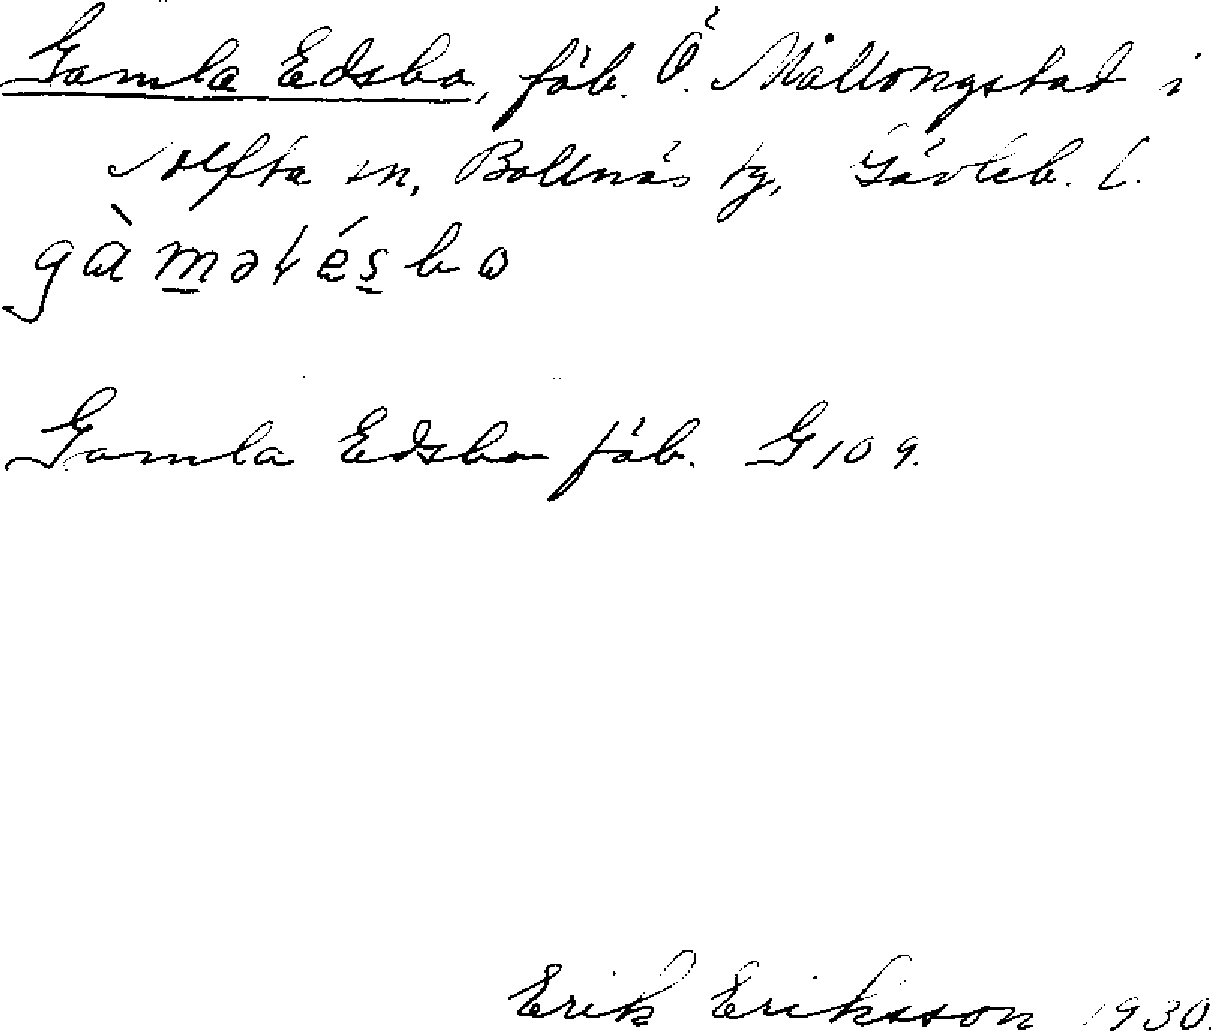 Gamla Edsbo, fäb. Ö. Mållongstad i
Alfta sn, Bollnäs tg, Gävleb. l.
gàmaɫésbo
Gamla Edsbo fäb. G109.
Erik Eriksson 1930.